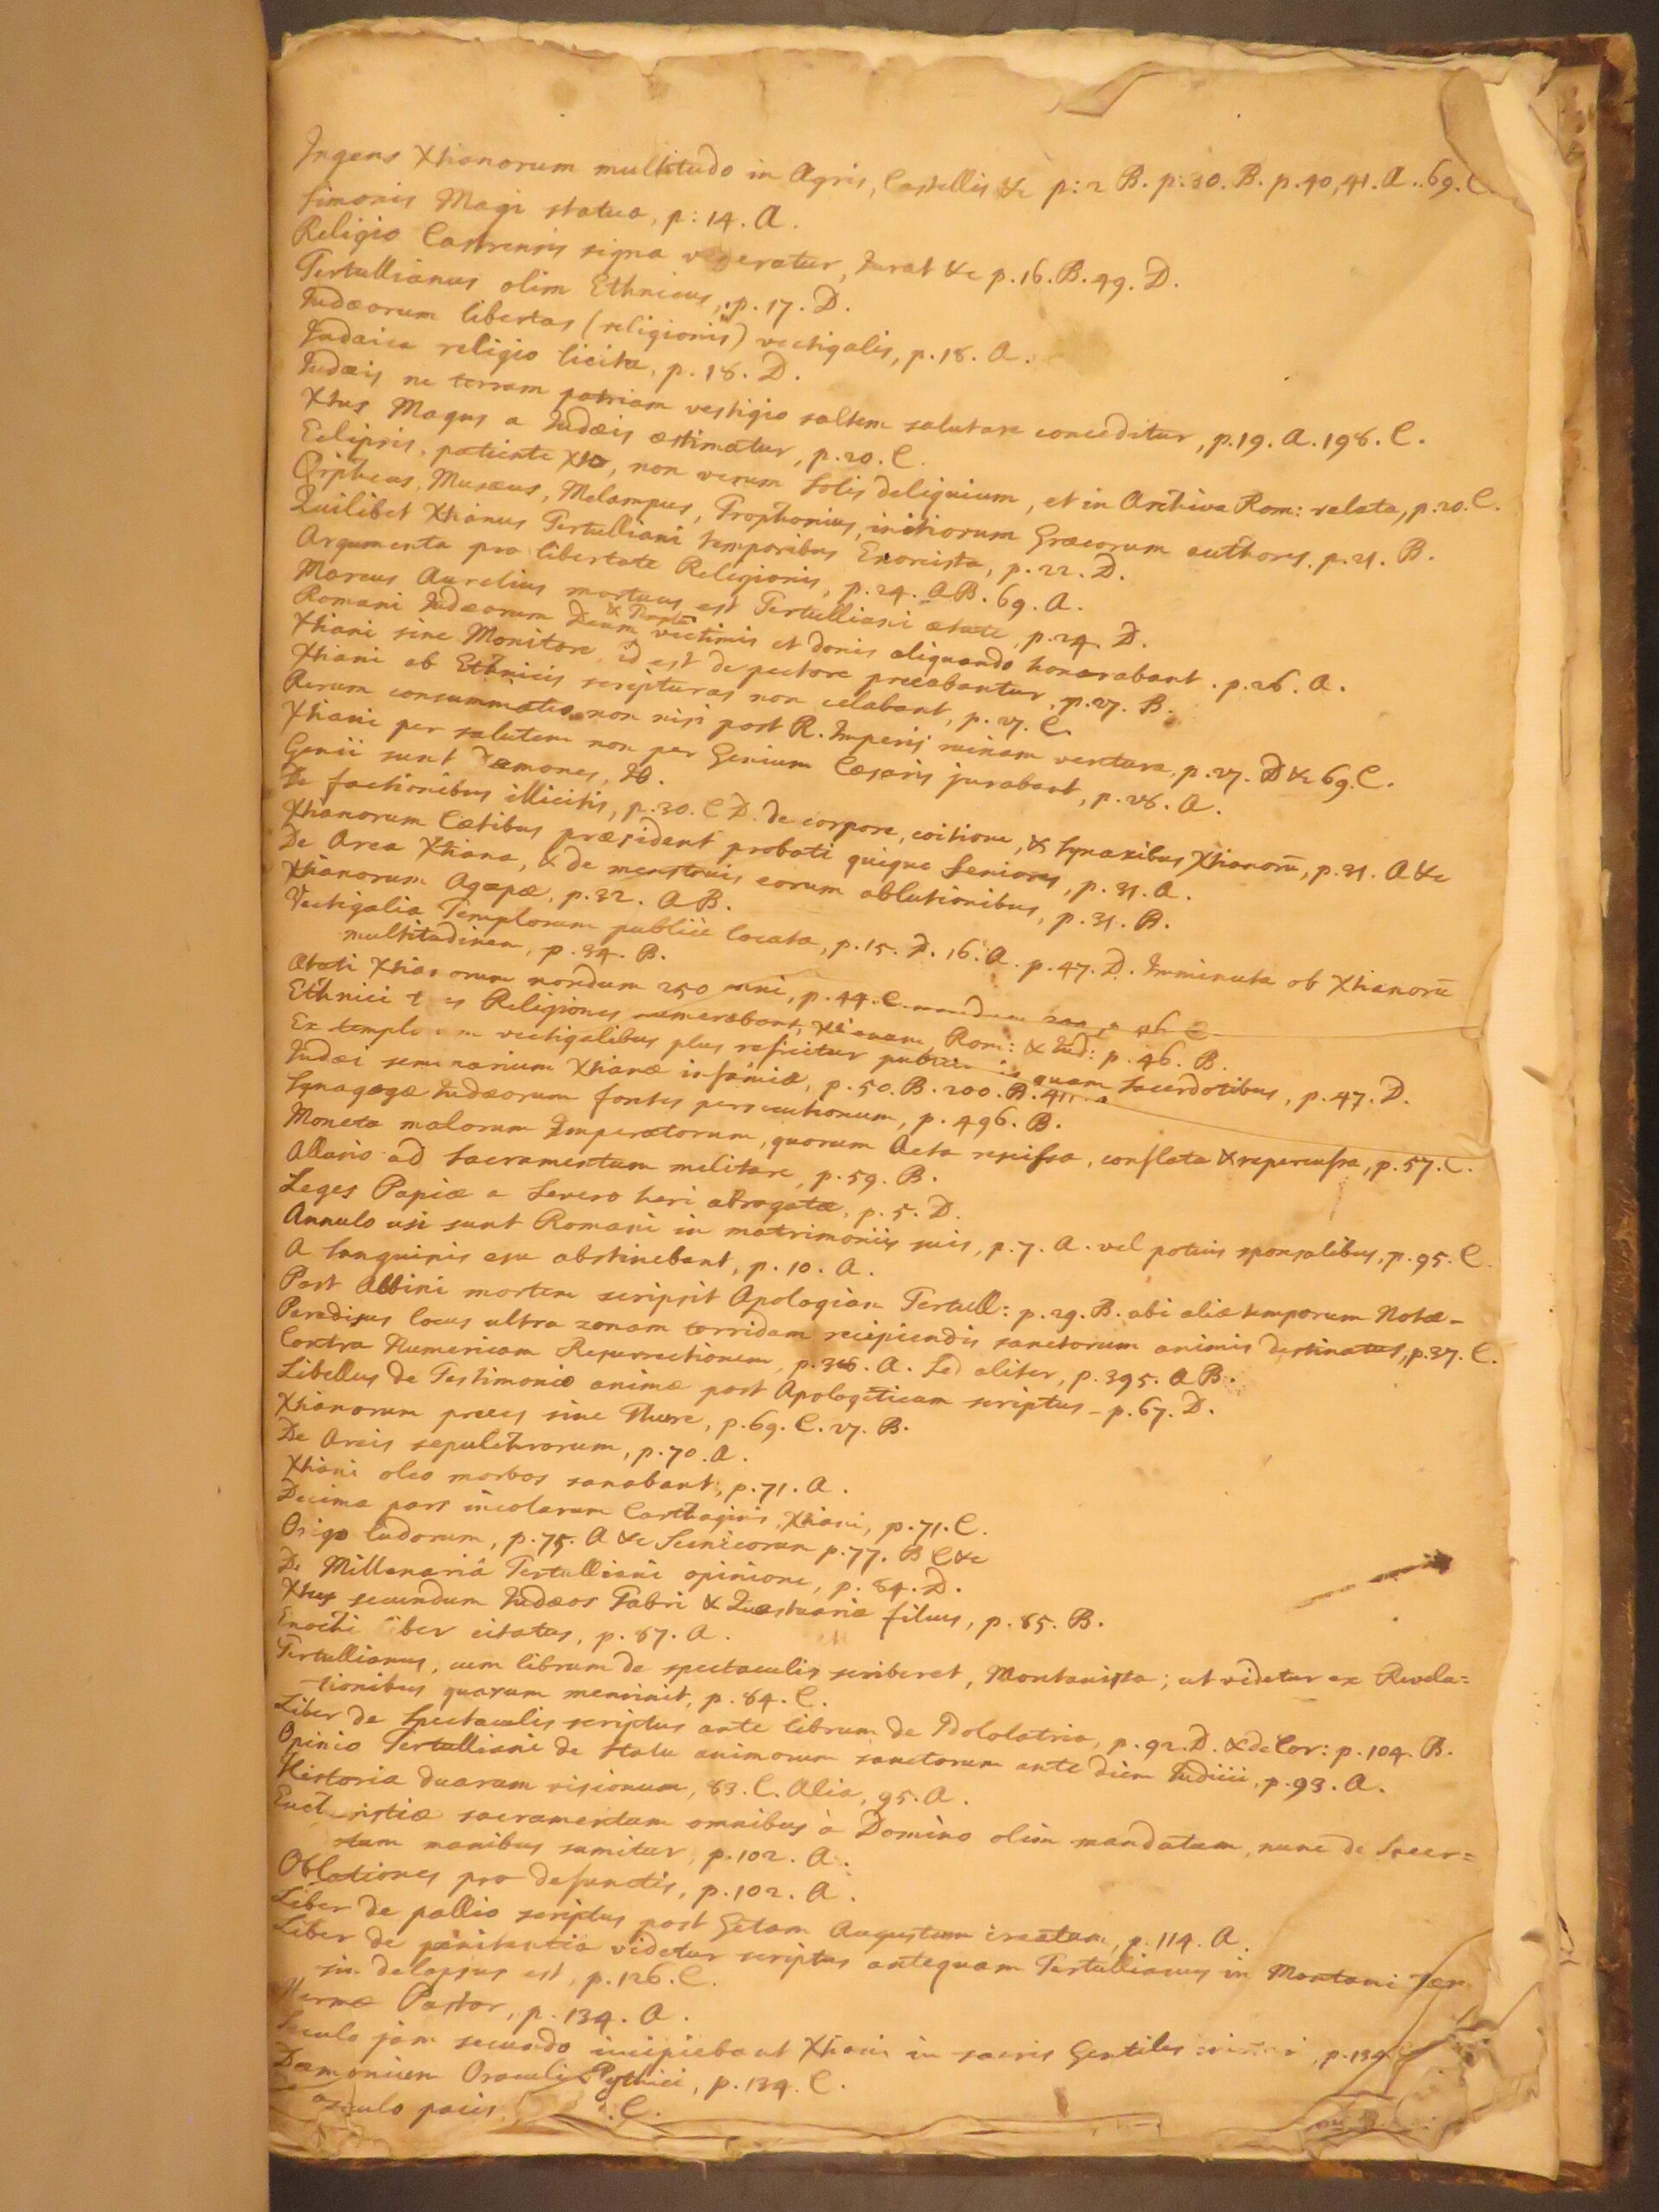 Ingens Xtianorum multitudo in Agris, Castellis &c p: 2 B. p. 30. B. p. 40, 41. A. 69. C.
Simonis Magi statua, p: 14. A.
Religio Castrensis signa veneratur, Jurat &c p. 16. B. 49. D.
Tertullianus olim Ethnicus, p. 17. D.
Judæorum libertas (religionis) vectigalis, p. 18. A.
Judaica religio licita, p. 18. D.
Judæis ne terram patriam vestigio saltem salutare conceditur, p. 19. A. 198. C.
Xtus Magus a Judæis æstimatur, p. 20. C.
Eclipsis, patiente Xto, non verum Solis deliquium, et in Archiva Rom: relata, p. 20. C.
Orpheus, Musæus, Melampus, Trophonius, initiorum Græcorum authores. p. 21. B.
Quilibet Xtianus Tertulliani temporibus Exorcista, p. 22. D.
Argumenta pro libertate Religionis, p. 24. A B. 69. A.
Marcus Aurelius mortuus est Tertulliani ætate, p. 24. D.
Romani Judæorum Deum & Templum victimis et donis aliquando honorabant. p. 26. A.
Xtiani sine Monitore, id est de pectore precabantur, p. 27. B.
Xtiani ab Ethnicis scripturas non celabant, p. 27. C.
Rerum consummatio non nisi post R. Imperij ruinam ventura, p. 27. D &c 69. C.
Xtiani per salutem non per Genium Cæsaris jurabant, p. 28. A.
Genii sunt Dæmones, Ib.
De factionibus illicitis, p. 30. C D. de corpore, coitione, & Synaxibus Xtianorū, p. 31. A &c
Xtianorum Cætibus præsident probati quique Seniores, p. 31. A.
De Arca Xtiana, & de menstruis eorum oblationibus, p. 31. B.
Xtianorum Agapæ, p. 32. A B.
Vectigalia Templorum publicè locata, p. 15. D. 16. A. p. 47. D. Imminuta ob Xtianorū
multitudinem, p. 34. B.
Ætati Xtianorum nondum 250 anni, p. 44. C.
Ethnici Religiones numerabant, Xtianam, Rom: & Jud: p. 46. B.
Ex templorum vectigalibus plus reficitur quam Sacerdotibus, p. 47. D.
Judæi seminarium Xtianæ infamiæ, p. 50. B. 200. B.
Synagogæ Judæorum fontes persecutionum, p. 496. B.
Moneta malorum Imperatorum, quorum Acta rescissa, conflata & repercussa, p. 57. C.
Allusio ad Sacramentum militare, p. 59. B.
Leges Papiæ a Severo heri abrogatæ, p. 5. D.
Annulo usi sunt Romani in matrimoniis suis, p. 7. A. vel potius sponsalibus, p. 95. C.
A Sanguinis esu abstinebant, p. 10. A.
Post Albini mortem scripsit Apologiam Tertull: p. 29. B. ubi aliæ temporum Notæ -
Paradisus locus ultra zonam torridam recipiendis sanctorum animis destinatus, p. 37. C.
Contra Numericam Resurrectionem, p. 38. A. Sed aliter, p. 395. A B.
Libellus de Testimonio animæ post Apologeticum scriptus - p. 67. D.
Xtianorum preces sine Thure, p. 69. C. 27. B.
De Areis sepulchrorum, p. 70. A.
Xtiani oleo morbos sanabant, p. 71. A.
Decima pars incolarum Carthaginis, Xtiani, p. 71. C.
Origo ludorum, p. 75. A &c Scenicorum p. 77. B C &c
De Millenariâ Tertulliani opinione, p. 84. D.
Xtus secundum Judæos Fabri & Quæstuariæ filius, p. 85. B.
Enochi liber citatus, p. 87. A.
Tertullianus, cum librum de spectaculis scriberet, Montanista; ut videtur ex Revela=
tionibus quarum meminit, p. 84. C.
Liber de Spectaculis scriptus ante librum de Idololatria, p. 92. D. & de Cor: p. 104. B.
Opinio Tertulliani de statu animorum sanctorum ante diem Judicii, p. 93. A.
Historia duarum visionum, 83. C. Alia, 95. A.
Eucharistiæ sacramentum omnibus à Domino olim mandatum, nunc de Sacer=
dotum manibus sumitur, p. 102. A.
Oblationes pro defunctis, p. 102. A.
Liber de pallio scriptus post Getam Augustum creatum, p. 114. A.
Liber de pænitentia videtur scriptus antequam Tertullianus in Montani
sin delapsus est, p. 126. C.
Hermæ Pastor, p. 134. A.
Seculo jam secundo incipiebant Xtiani in sacris Gentiles p. 134
Dæmonium Oraculi Pythici, p. 134. C.
osculo pacis C.